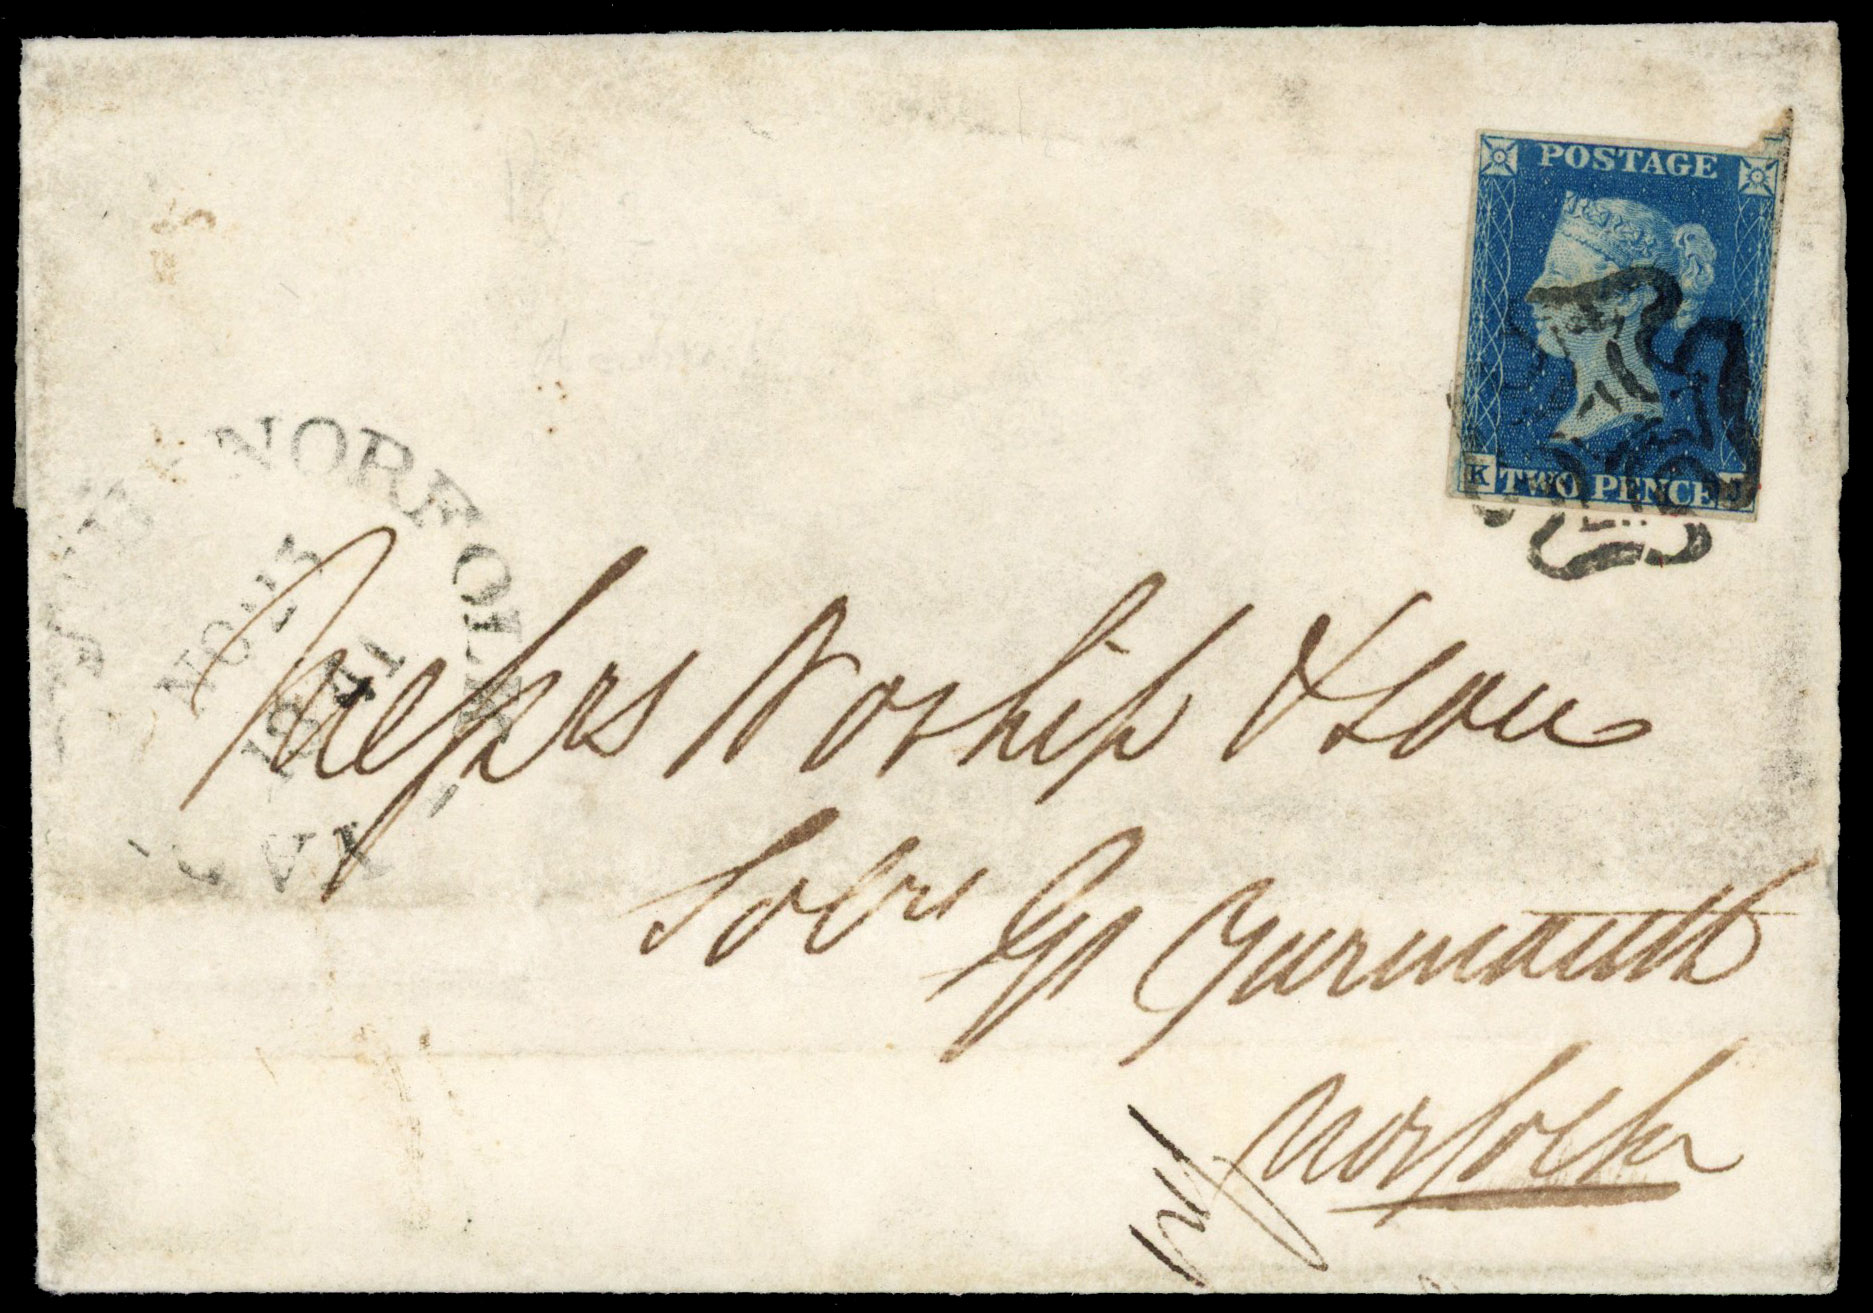 POSTAGE
K TWO PENCE J
NORFOLK
NO 23
1841
Messrs Worship & Son
Solrs Gt Yarmouth
Norfolk